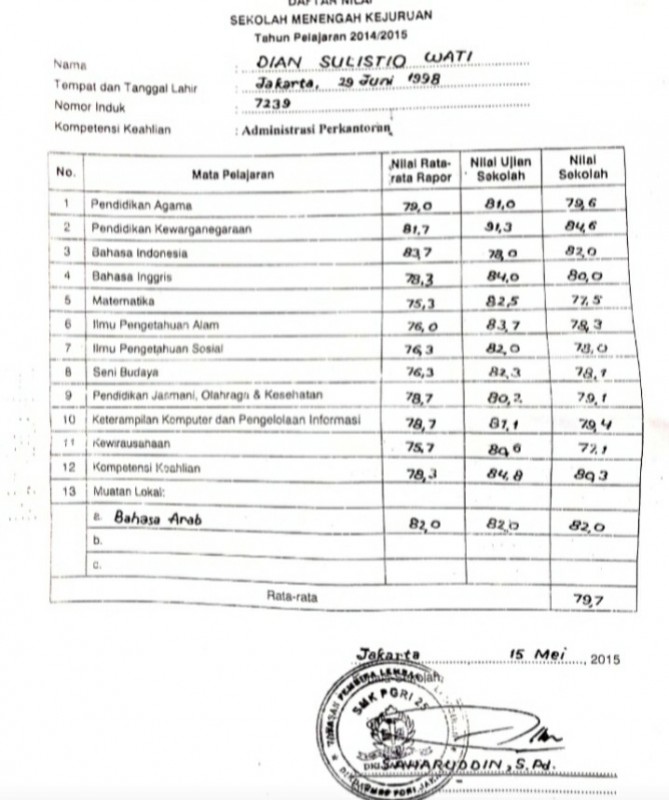 DAFTAR NILAI
SEKOLAH MENENGAH KEJURUAN
Tahun Pelajaran 2014/2015
Nama : DIAN SULISTIO WATI
Tempat dan Tanggal Lahir : Jakarta, 29 Juni 1998
Nomor Induk : 7239
Kompetensi Keahlian : Administrasi Perkantoran
No. Mata Pelajaran Nilai Rata-rata Rapor Nilai Ujian Sekolah Nilai Sekolah
1 Pendidikan Agama 79,0 81,0 79,6
2 Pendidikan Kewarganegaraan 81,7 91,3 84,6
3 Bahasa Indonesia 83,7 78,0 82,0
4 Bahasa Inggris 78,3 84,0 80,0
5 Matematika 75,3 82,5 77,5
6 Ilmu Pengetahuan Alam 76,0 83,7 78,3
7 Ilmu Pengetahuan Sosial 76,3 82,0 78,0
8 Seni Budaya 76,3 82,3 78,1
9 Pendidikan Jasmani, Olahraga & Kesehatan 78,7 80,2 79,1
10 Keterampilan Komputer dan Pengelolaan Informasi 78,7 81,1 79,4
11 Kewirausahaan 75,7 80,6 77,1
12 Kompetensi Keahlian 78,3 84,8 80,3
13 Muatan Lokal:
a. Bahasa Arab 82,0 82,0 82,0
b.
c.
Rata-rata 79,7
Jakarta, 15 Mei, 2015
Sekolah,
YAYASAN PEMBINA LEMBAGA
SMK PGRI 25
SAHARUDDIN, S.Pd.